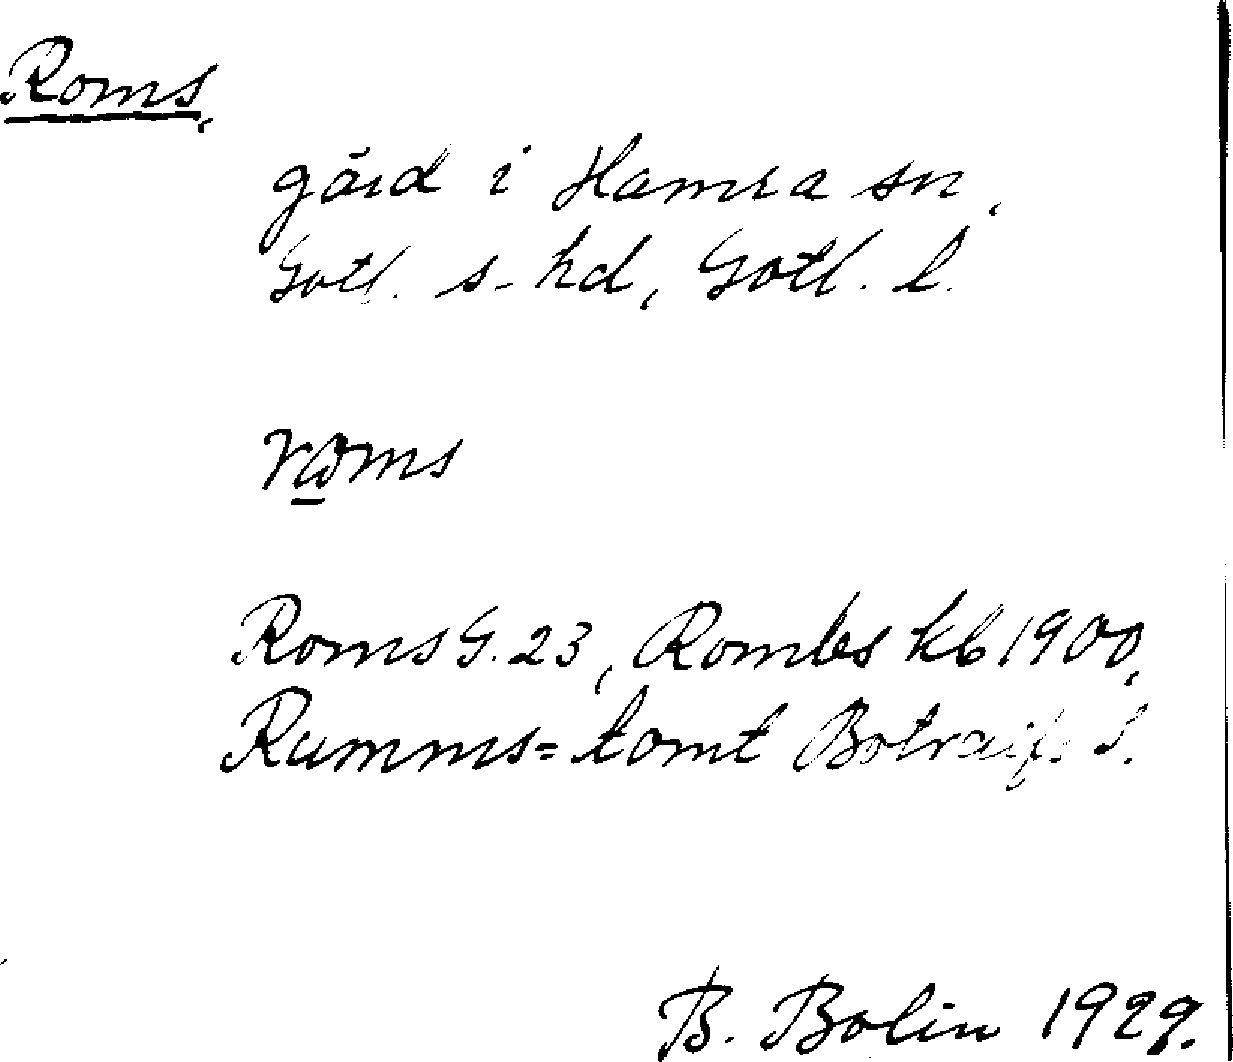 Roms,
gård i Hamra sn,
Gotl. s. hd, Gotl. l.
Roms G. 23, Rombs kb 1900,
Rumms=tomt S.
B. Bolin 1929.